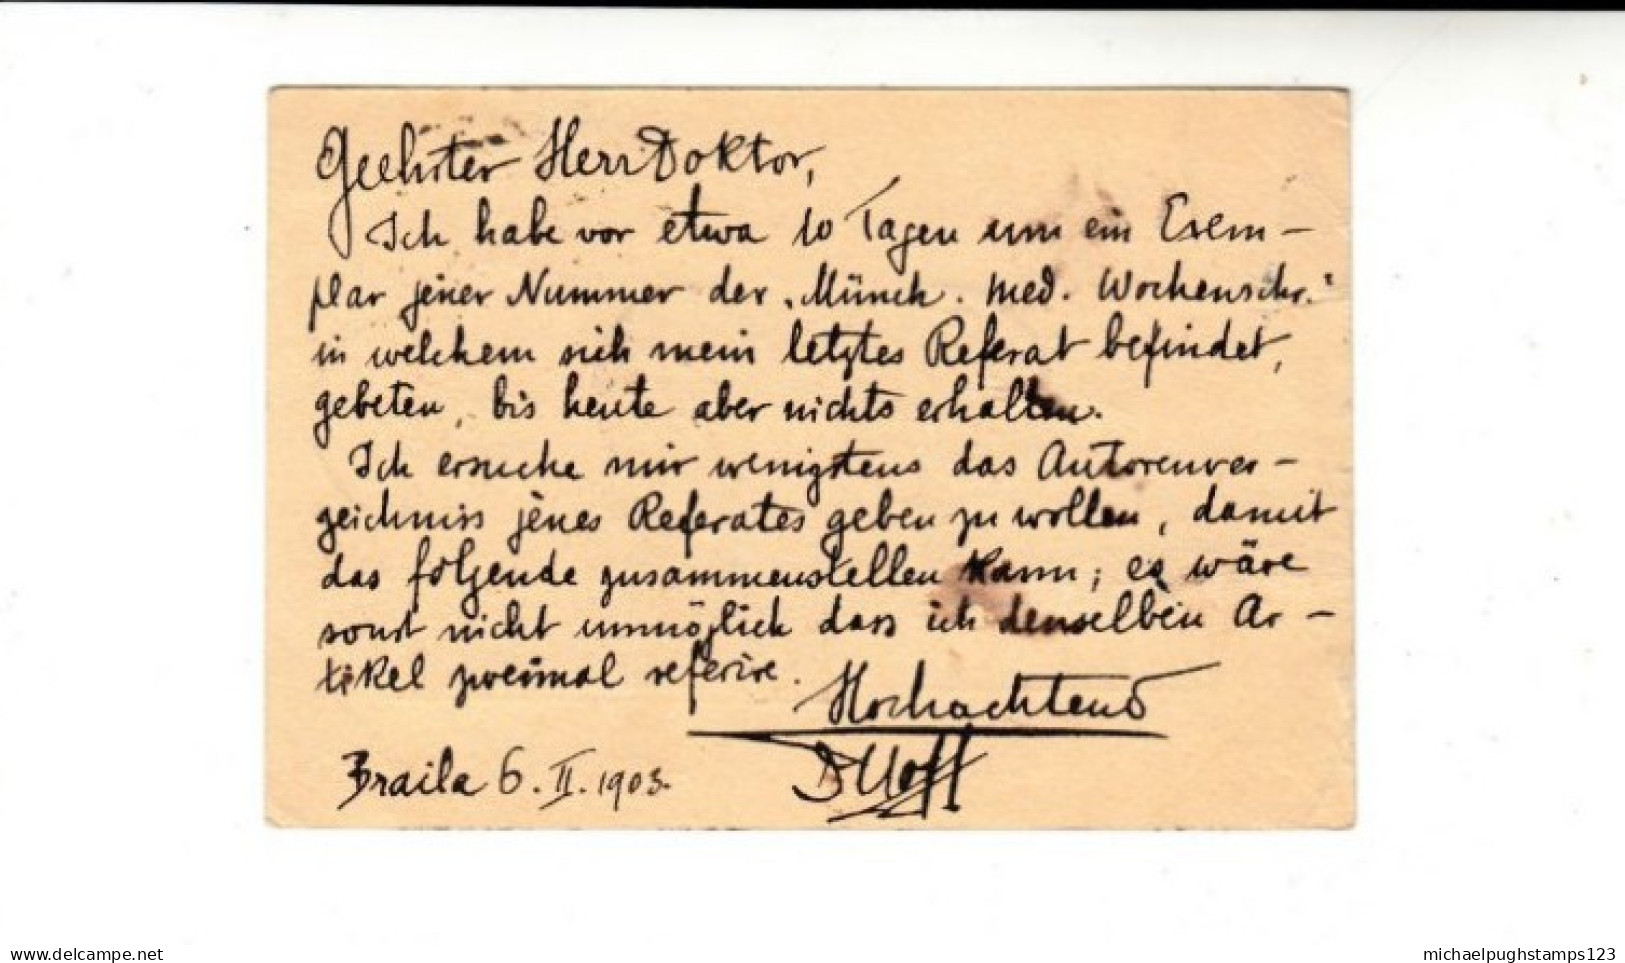 Geehrter Herr Doktor,
Ich habe vor etwa 10 Tagen um ein Exem-
plar jener Nummer der „Münch. med. Wochenschr."
in welchem sich mein letztes Referat befindet,
gebeten, bis heute aber nichts erhalten.
Ich ersuche mir wenigstens das Autorenver-
zeichniss jenes Referates geben zu wollen, damit
das folgende zusammenstellen kann; es wäre
sonst nicht unmöglich dass ich denselben Ar-
tikel zweimal referire.
Hochachtend
Braila 6. II. 1903.
delcampe.net
michaelpughstamps123